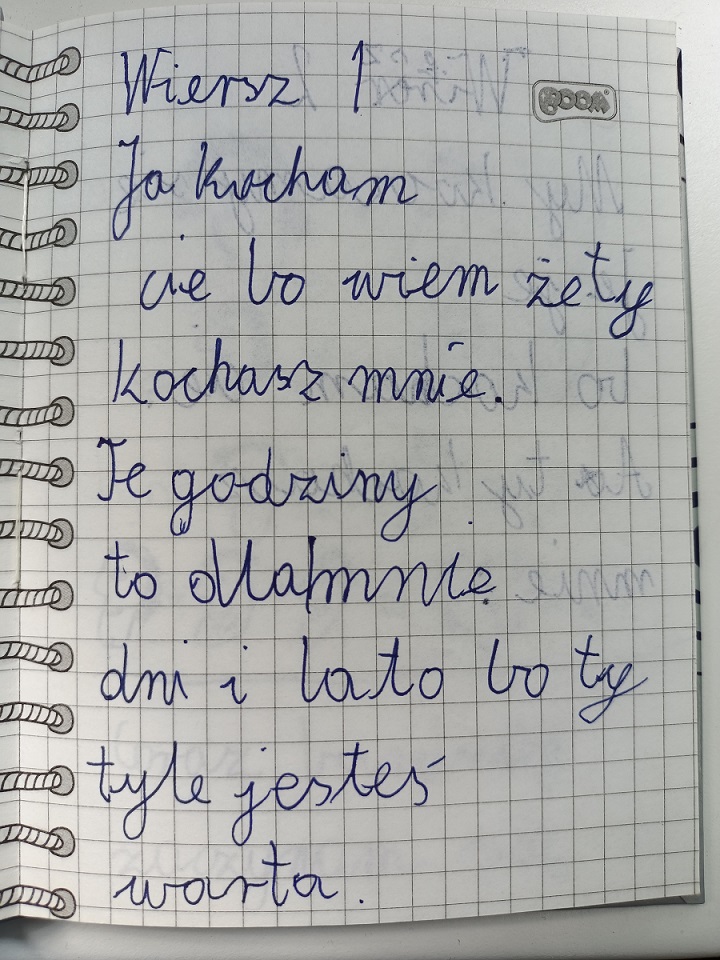 Wiersz 1
ROOM
Ja kocham
cie bo wiem żety
kochasz mnie.
Te godziny
to dla|mnie
dni i lato bo ty
tyle jesteś
warta.